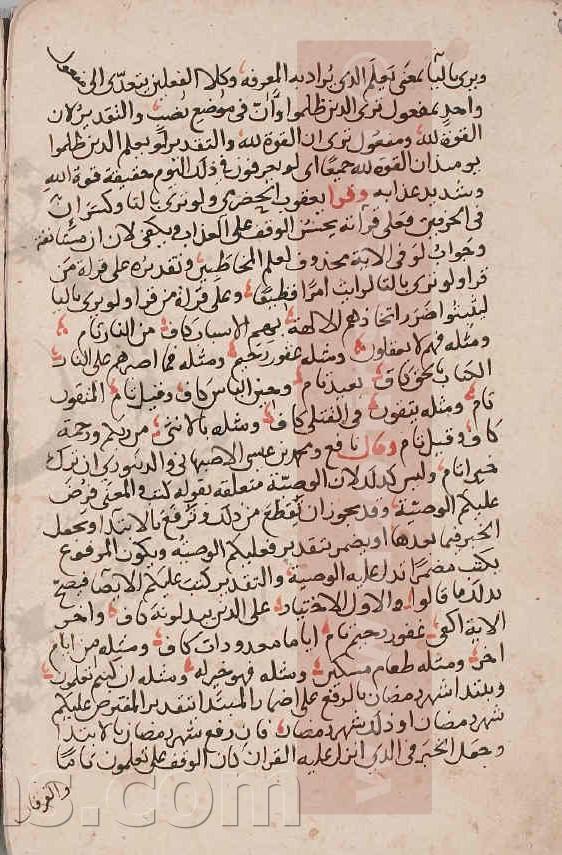 ويرى بالياء بمعنى تعلم الذي يراد به المعرفة وكلا الفعلين يتعدى الى مفعول
واحد بمفعول ترى الذين ظلموا وأن في موضع نصب والتقدير لان
القوة لله ومفعول ترى ان القوة لله والتقدير لو يعلم الذين ظلموا
يومئذ ان القوة لله جميعا اي لو يعرفون في ذلك اليوم حقيقة قوة الله
وشديد عذابه وقرا يعقوب الحضرمي ولو ترى بالتا وكسر إن
في الحرفين فعلى قرآته يحسن الوقف على العذاب ويكفي لان ان مستانفة
وجواب لو في الاية محذوف لعلم المخاطبين وتقديره على قراة من
قرا ولو ترى بالتا لرايت امرا فظيعا وعلى قراة من قرا ولو يرى باليا
ليتبينوا ضرر اتخاذهم الالهة بهم الاسباب كاف من النار تام
ومثله فهم لا يعقلون ومثله غفور رحيم ومثله فما اصبرهم على النار
الكتاب بالحق كاف بعيد تام وحين الباس كاف وقيل تام المتقون
تام ومثله يتقون في القتلى كاف ومثله بالانثى من ربكم ورحمة
كاف وقيل تام وقال نافع ومحمد بن عيسى الاصبهاني والدينوري ان ترك
خيرا تام وليس كذلك لان الوصية متعلقة بقوله كتب والمعنى فرض
عليكم الوصية وقد يجوز ان تقطع من ذلك وترفع بالابتدا ويجعل
الخبر فيما بعدها او يضمر بتقدير فعليكم الوصية ويكون المرفوع
بكتب مضمرا تدل عليه الوصية والتقدير كتب عليكم الايصا فيصح
بذلك ما قالوا والاول الاختيار على الذين يبدلونه كاف واخر
الاية اكفى غفور رحيم تام اياما معدودات كاف ومثله من ايام
اخر ومثله طعام مسكين ومثله فهو خير له ومثله ان كنتم تعلمون
ويبتدا شهر رمضان بالرفع على اضمار المبتدا بتقدير المفترض عليكم
شهر رمضان او ذلك شهر رمضان فان رفع شهر رمضان بالابتدا
وجعل الخبر في الذي انزل عليه القران كان الوقف على تعلمون تاما
والفرقان
is.com